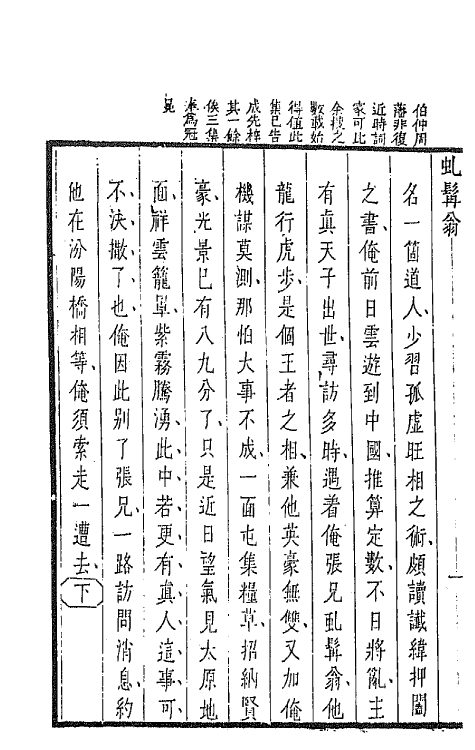 伯仲周
藩非復
近時詞
家可此
余搜之
數載始
得值此
集已告
成先梓
其一餘
俟三集
奉為冠
冕
虬髯翁
一
名一箇道人、少習孤虛旺相之術、頗讀讖緯押闔
之書、俺前日雲遊到中國、推算定數、不日將亂、主
有真天子出世、尋訪多時、遇着俺張兄虬髯翁、他
龍行虎步、是個王者之相、兼他英豪無雙、又加俺
機謀莫測、那怕大事不成、一面屯集糧草、招納賢
豪、光景已有八九分了、只是近日望氣見太原地
面、祥雲籠罩、紫霧騰湧、此中若更有真人、這事可
不決撒了也、俺因此別了張兄、一路訪問消息、約
他在汾陽橋相等、俺須索走一遭去、下